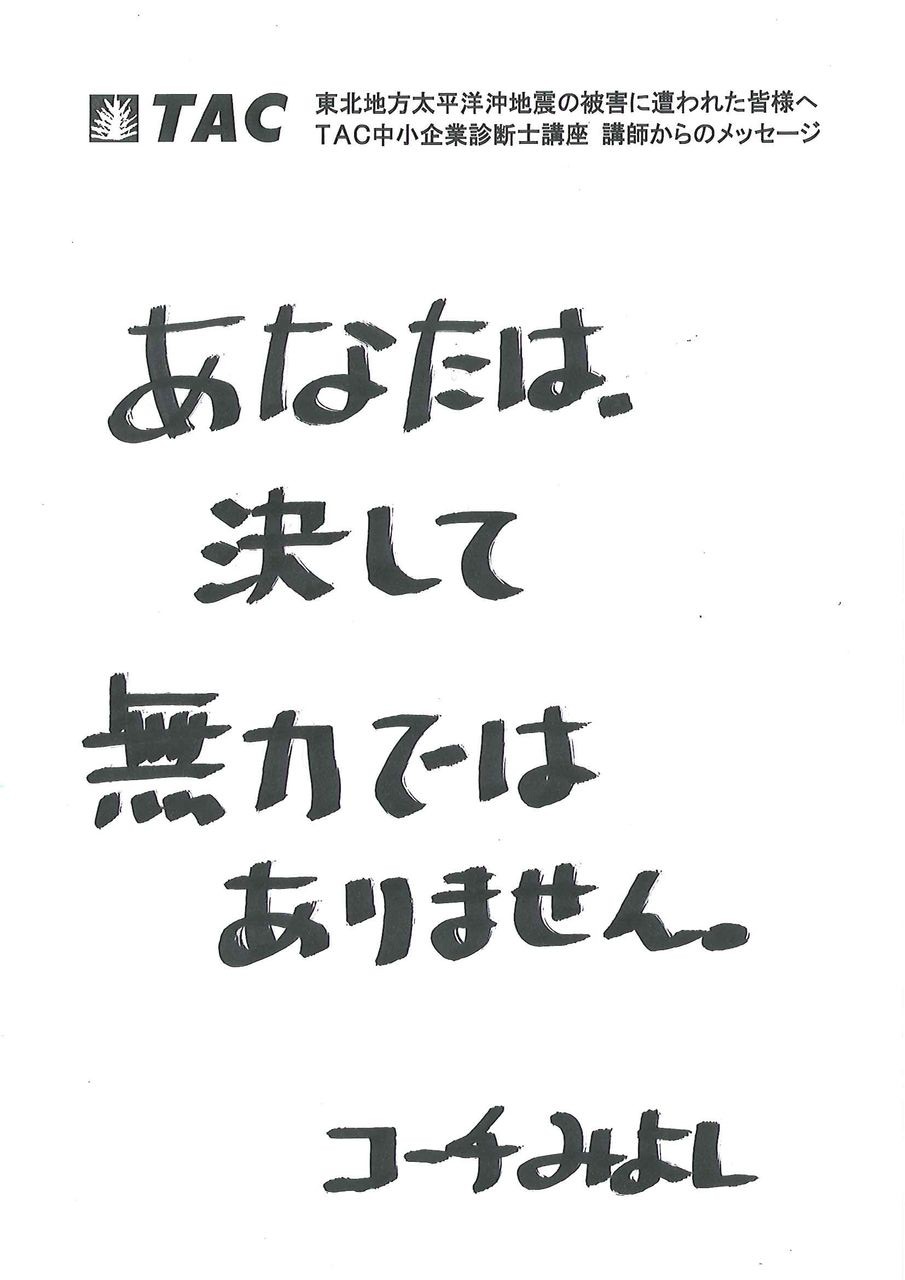 TAC
東北地方太平洋沖地震の被害に遭われた皆様へ
TAC中小企業診断士講座 講師からのメッセージ
あなたは、
決して
無力では
ありません。
コーチみよし